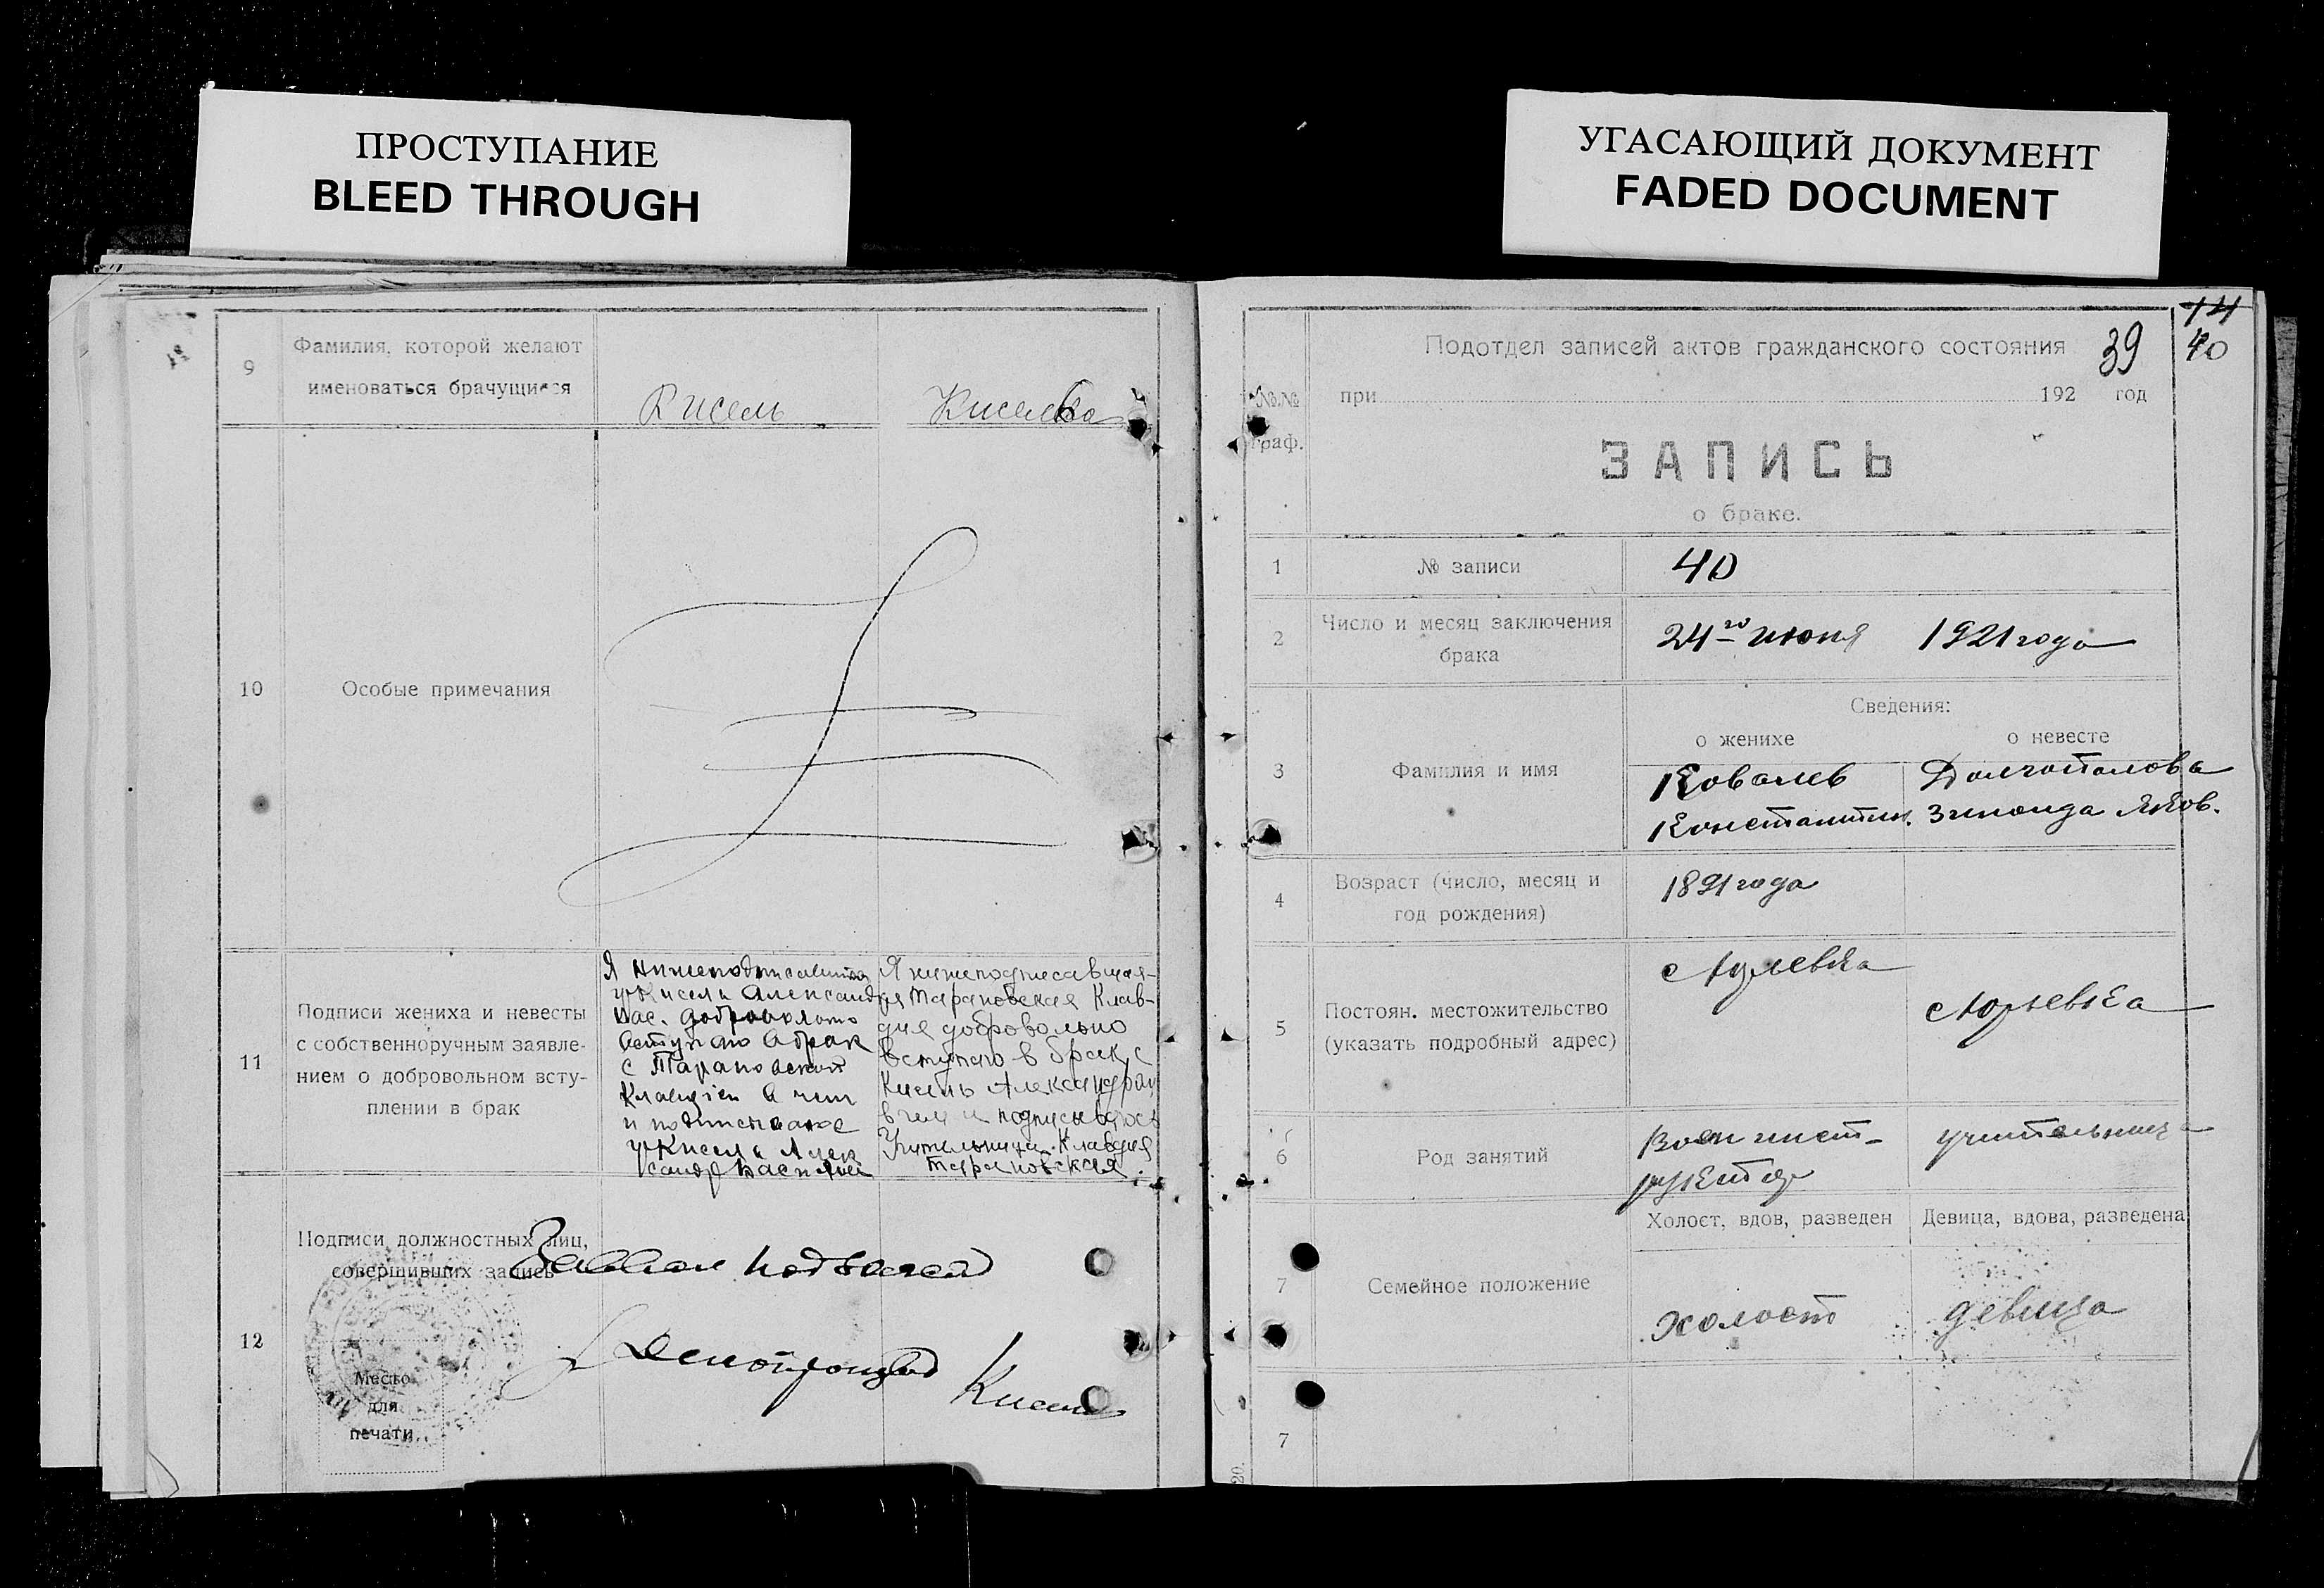 ПРОСТУПАНИЕ
BLEED THROUGH
УГАСАЮЩИЙ ДОКУМЕНТ
FADED DOCUMENT
9
Фамилия, которой желают
именоваться брачущиеся
Кисель
10
Особые примечания
11
Подписи жениха и невесты
с собственноручным заявле-
нием о добровольном всту-
плении в брак
Я нижеподписавшийся
Кисель Александр
Вас. добровольно
вступаю в брак
с Тарановской
Клавдіей в чем
и подписываюс
Кисель Алек
сандр Васильев
Я нижеподписавшая-
ся Тарановская Клав-
дия добровольно
вступаю в брак с
Кисель Александром
в чем и подписываюсь
Учительница Клавдия
Тарановская.
12
Подписи должностных лиц,
совершивших запись
Место
для
печати
14
40
39
Подотдел записей актов гражданского состояния
№№
граф.
при 192 год
ЗАПИСЬ
о браке.
1
№ записи
40
2
Число и месяц заключения
брака
24го июня 1921 года
Сведения:
о женихе
о невесте
3
Фамилия и имя
Ковалев
Константин.
Долгополова
Зинаида Яков.
4
Возраст (число, месяц и
год рождения)
1891 года
5
Постоян. местожительство
(указать подробный адрес)
6
Род занятий
Воен инст-
руктор
учительница
7
Семейное положение
Холост, вдов, разведен
Девица, вдова, разведена
холост
девица
7
20.